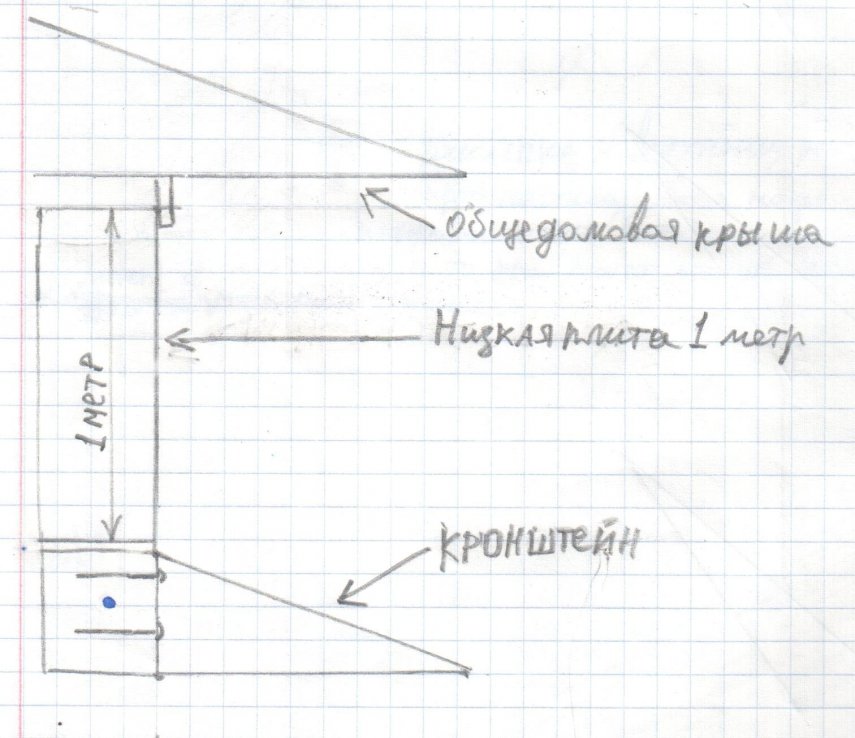 Общедомовая крыша
Низкая плита 1 метр
1 метр
кронштейн